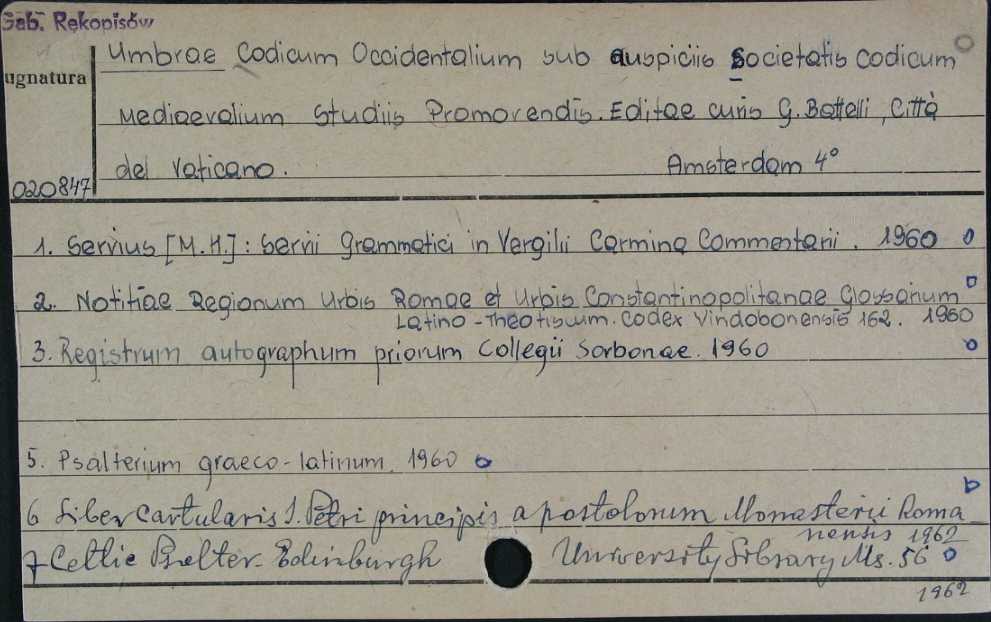 Gab. Rękopisów
Umbrae Codicum Occidentalium sub auspiciis Societatis Codicum
ugnatura
Mediaevalium Studiis Promovendis. Editae curis G. Battelli, Città
del Vaticano. Amsterdam 4°
020847
1. Servius [M.H.]: Servii Grammatici in Vergilii Carmina Commentarii. 1960
2. Notitiae Regionum Urbis Romae et Urbis Constantinopolitanae Glossarium
Latino-Theotiscum. Codex Vindobonensis 162. 1960
3. Registrum autographum priorum Collegii Sorbonae. 1960
5. Psalterium graeco-latinum. 1960
6 Liber Cartularis S. Petri principis apostolorum Monasterii Roma
nensis 1962
7 Celtic Psalter. Edinburgh University Library Ms. 56
1962